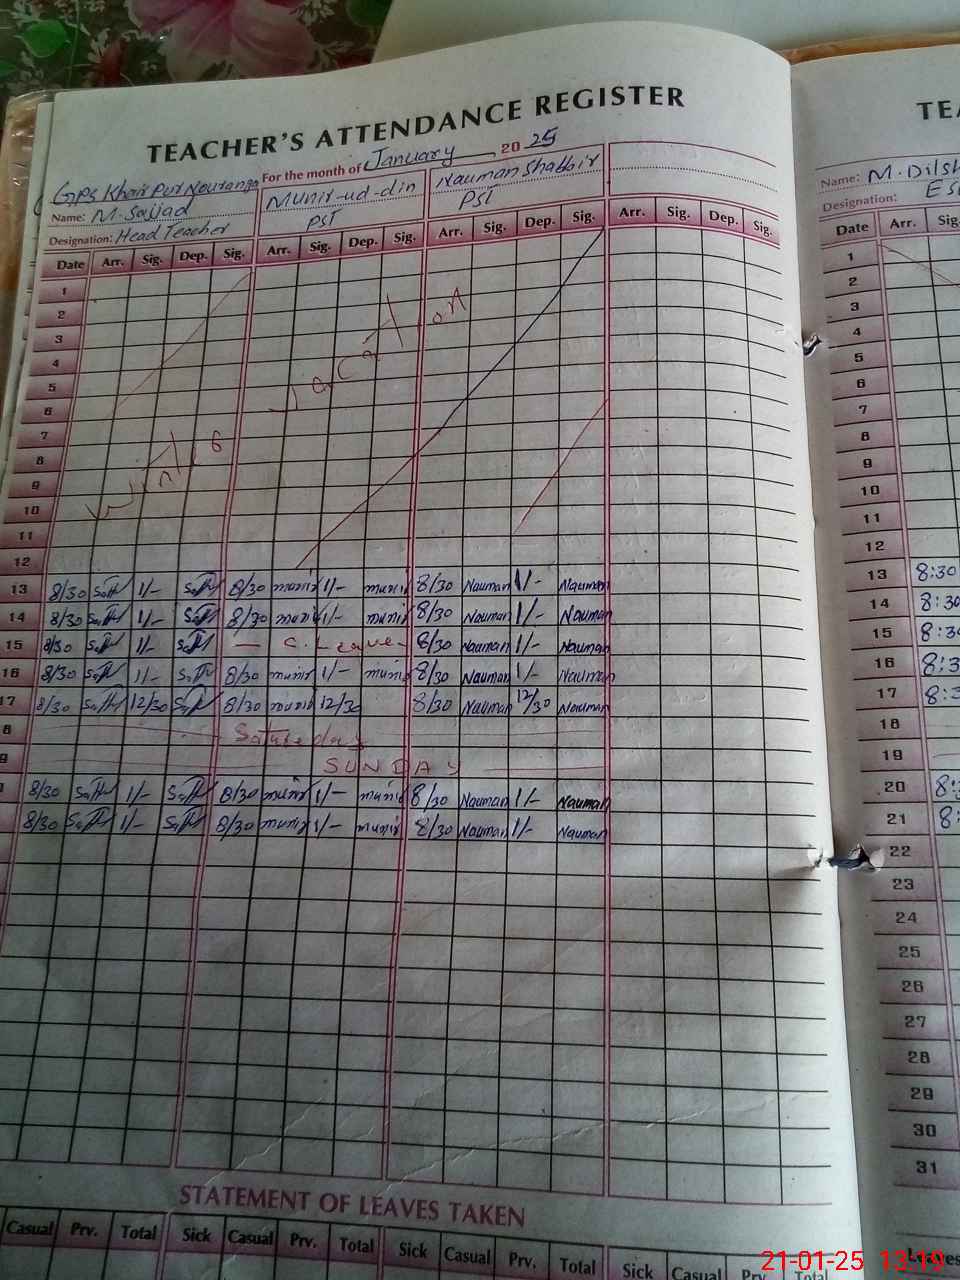 TEACHER'S ATTENDANCE REGISTER
For the month of January 20 25
GPS Khair Pur Nouranga
Name: M. Sajjad
Designation: Head Teacher
Munir-ud-din
PST
Nauman Shabbir
PST
Date Arr. Sig. Dep. Sig. Arr. Sig. Dep. Sig. Arr. Sig. Dep. Sig. Arr. Sig. Dep. Sig.
1
2
3
4
5
6
7
8
9
10
11
12
Winter Vacation
13 8/30 1/- 8/30 munir 1/- munir 8/30 Nauman 1/- Nauman
14 8/30 1/- 8/30 munir 1/- munir 8/30 Nauman 1/- Nauman
15 8/30 1/- — C. Leave 8/30 Nauman 1/- Nauman
16 8/30 1/- 8/30 munir 1/- munir 8/30 Nauman 1/- Nauman
17 8/30 12/30 8/30 munir 12/30 8/30 Nauman 12/30 Nauman
8 Saturday
9 SUNDAY
8/30 1/- 8/30 munir 1/- munir 8/30 Nauman 1/- Nauman
8/30 1/- 8/30 munir 1/- munir 8/30 Nauman 1/- Nauman
STATEMENT OF LEAVES TAKEN
Casual Prv. Total Sick Casual Prv. Total Sick Casual Prv. Total Sick Casual Prv. Total
TEA
Name: M. Dilsh
Designation: ES
Date Arr.
1
2
3
4
5
6
7
8
9
10
11
12
13 8:30
14 8:30
15 8:30
16 8:3
17 8:3
18
19
20 8:
21 8:
22
23
24
25
26
27
28
29
30
31
21-01-25 13:19